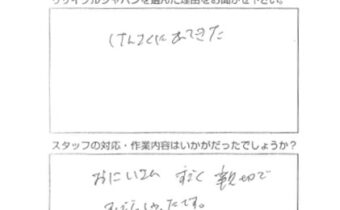 リサイクルジャパンを選んだ理由をお聞かせ下さい。
けんさくにでてきた
スタッフの対応・作業内容はいかがだったでしょうか？
おにいさん すごく 親切で
です。